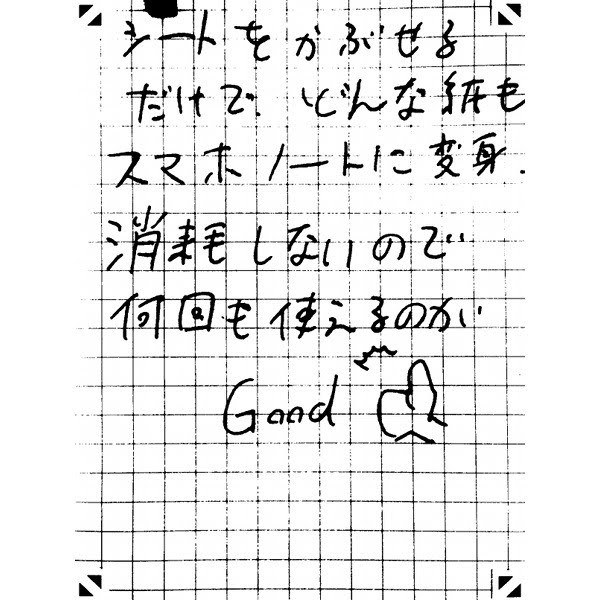 シートをかぶせる
だけで、どんな紙も
スマホノートに変身.
消耗しないので
何回も使えるのが
Good